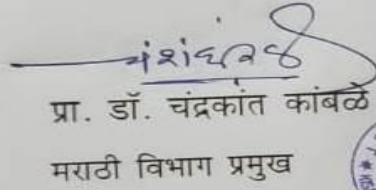 प्रा. डॉ. चंद्रकांत कांबळे
मराठी विभाग प्रमुख